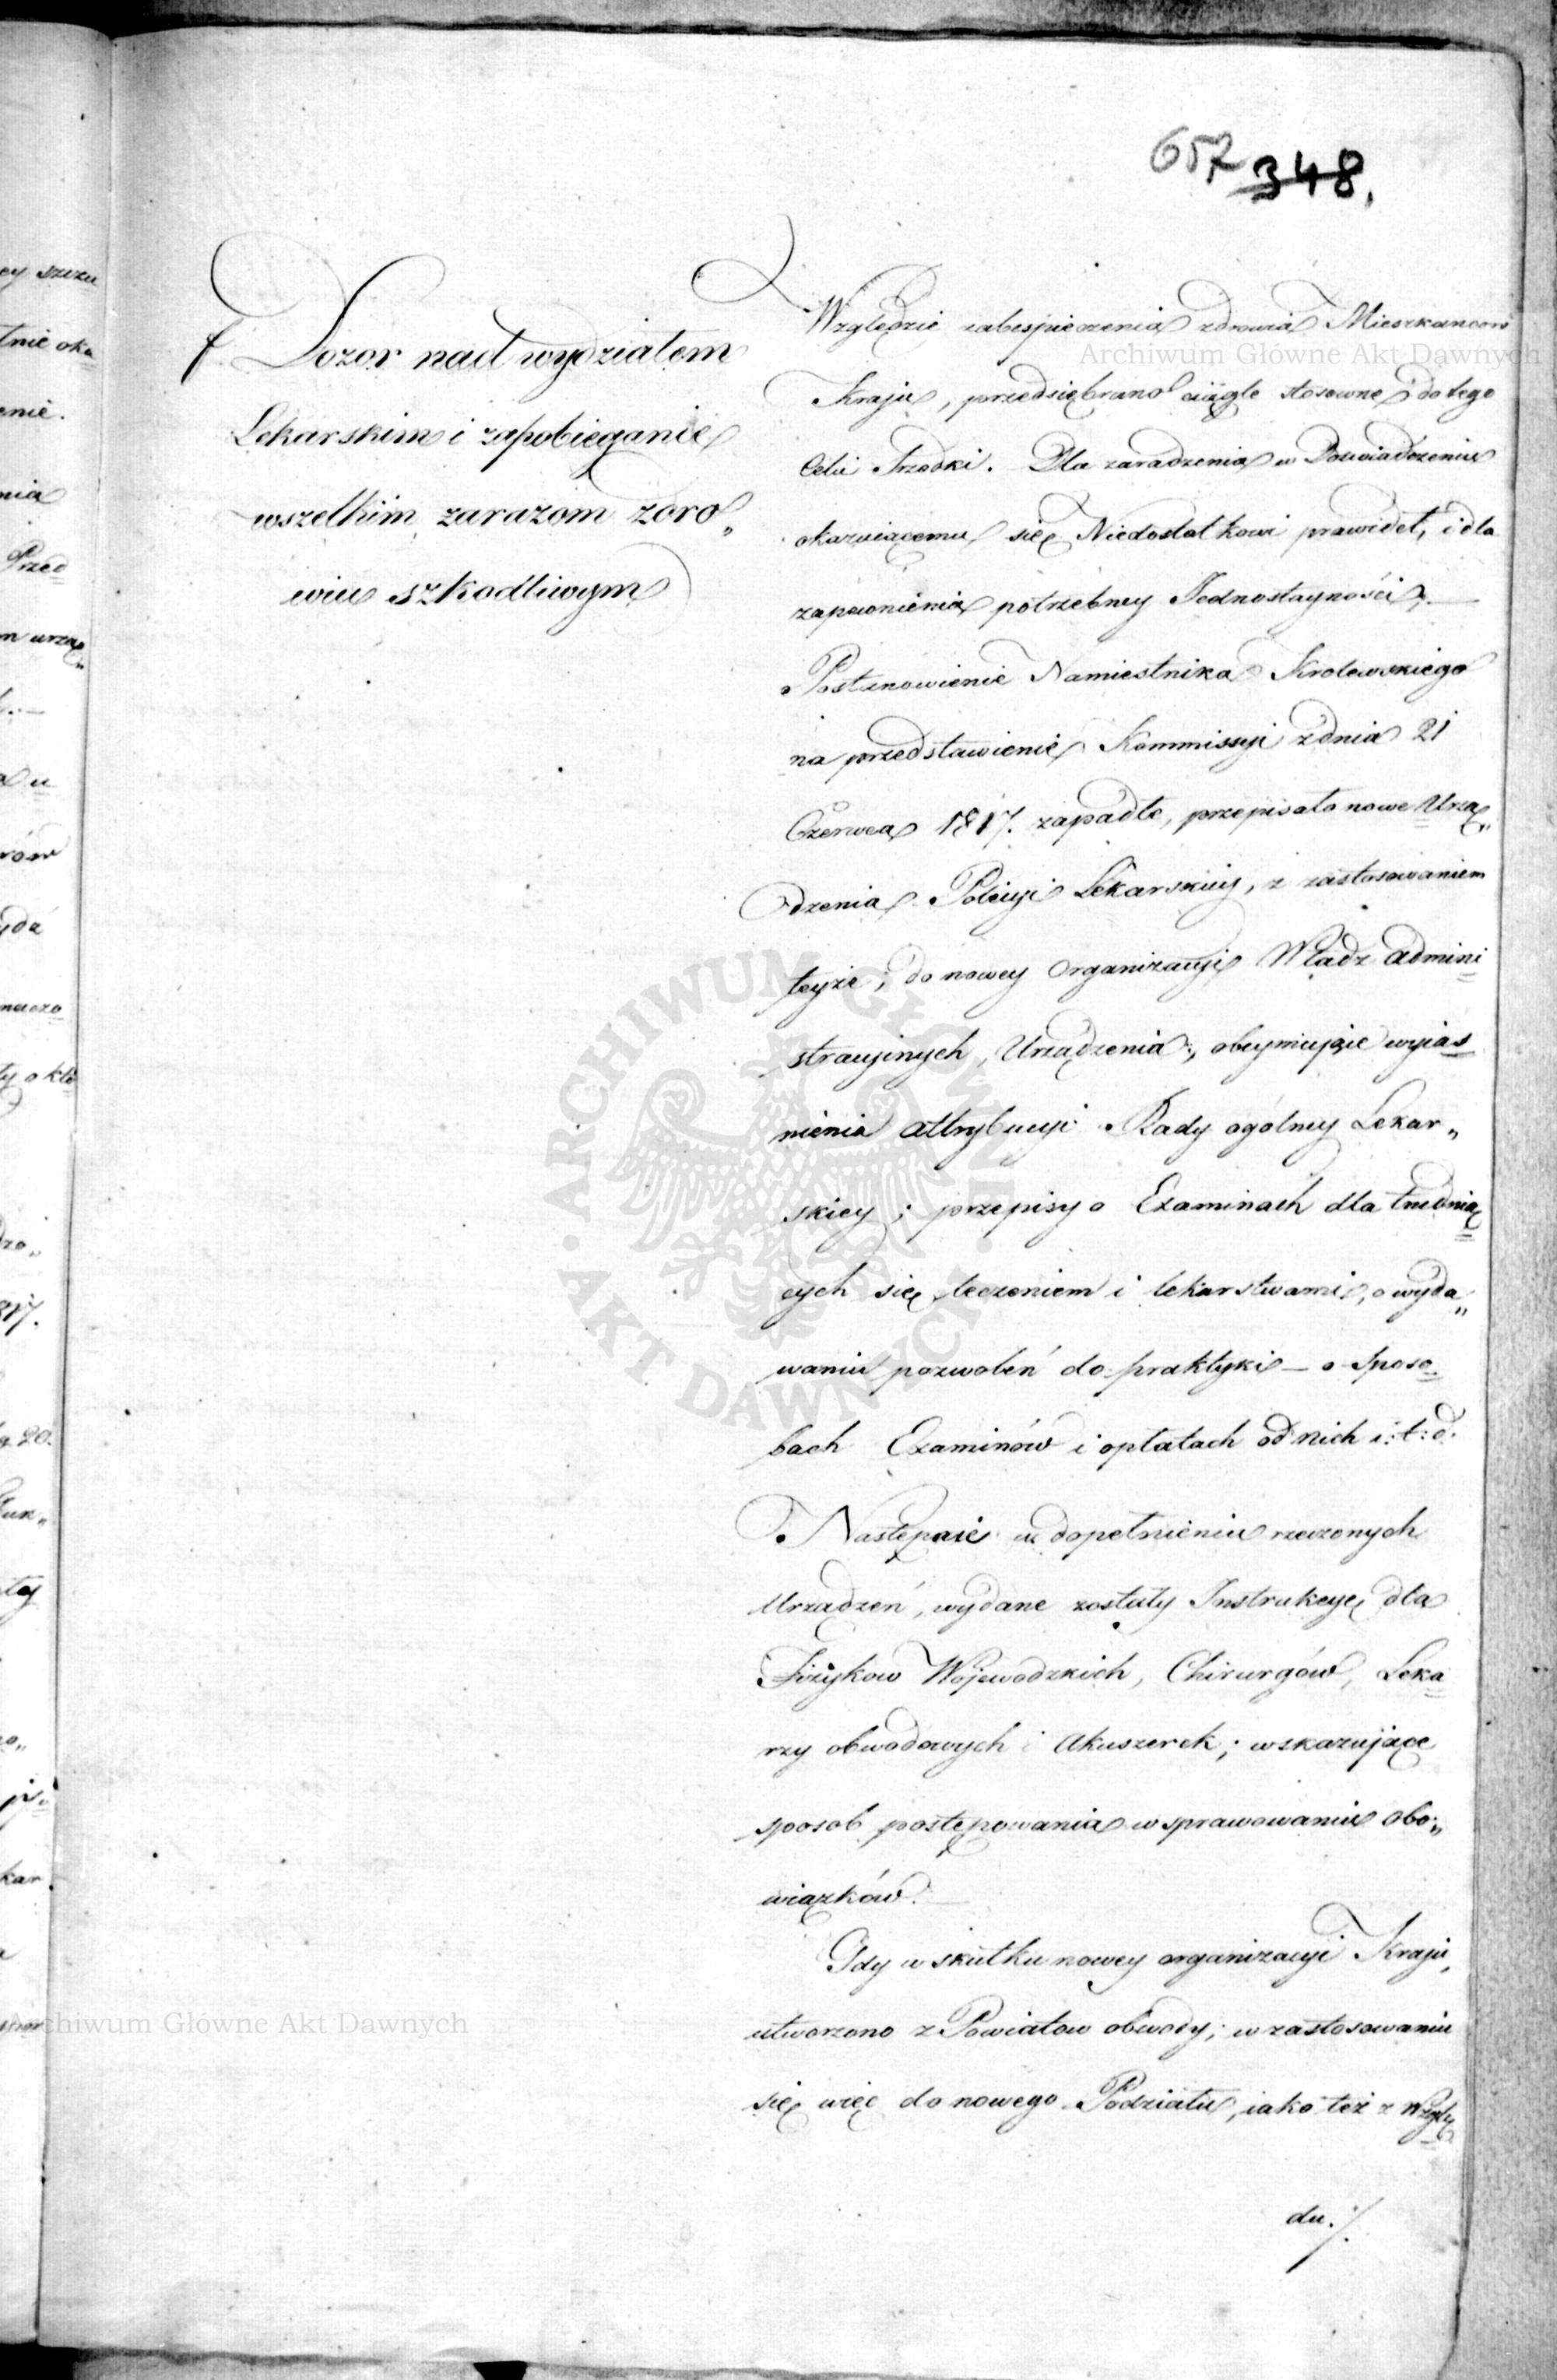 657 348.
f. Dozor nad wydziałem
Lekarskim i zapobieganie
wszelkim zarazom zdro„
wiu szkodliwym
Względzie zabespieczenia zdrowia Mieszkancow
Kraju, przedsiębrano ciągle stosowne do tego
Celu Srzodki. Dla zaradzenia w Doswiadczeniu
okazuiącemu się Niedostatkowi prawideł, i dla
zapewnienia potrzebney Jednostayności,
Postanowienie Namiestnika Krolewskiego
na przedstawienie Kommissyi z dnia 21
Czerwca 1817. zapadłe, przepisało nowe Urzą„
dzenia Policyi Lekarskiey, z zastosowaniem
teyże, do nowey Organizacyi Władz Admini
stracyinych, Urządzenia, obeymuiące wyias
nienia attrybucyi Rady ogólney Lekar„
skiey; przepisy o Examinach dla trudnią
cych się leczeniem i lekarstwami, o wyda„
waniu pozwoleń do praktyki — o Sposo
bach Examinów i opłatach od nich i: t: d.
Następnie w dopełnieniu rzeczonych
Urządzeń, wydane zostały Instrukcye dla
Fizykow Wojewodzkich, Chirurgów, Leka
rzy obwodowych i Akuszerek; wskazujące
sposob postępowania w sprawowaniu obo„
wiązków.
Gdy w skutku nowey organizacyi Kraju,
utworzono z Powiatow obwody; w zastosowaniu
się więc do nowego Podziału, iako też z Wzglę
du ./.
Archiwum Główne Akt Dawnych
ARCHIWUM GŁÓWNE AKT DAWNYCH
Archiwum Główne Akt Dawnych